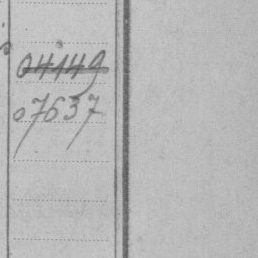 04149
07637